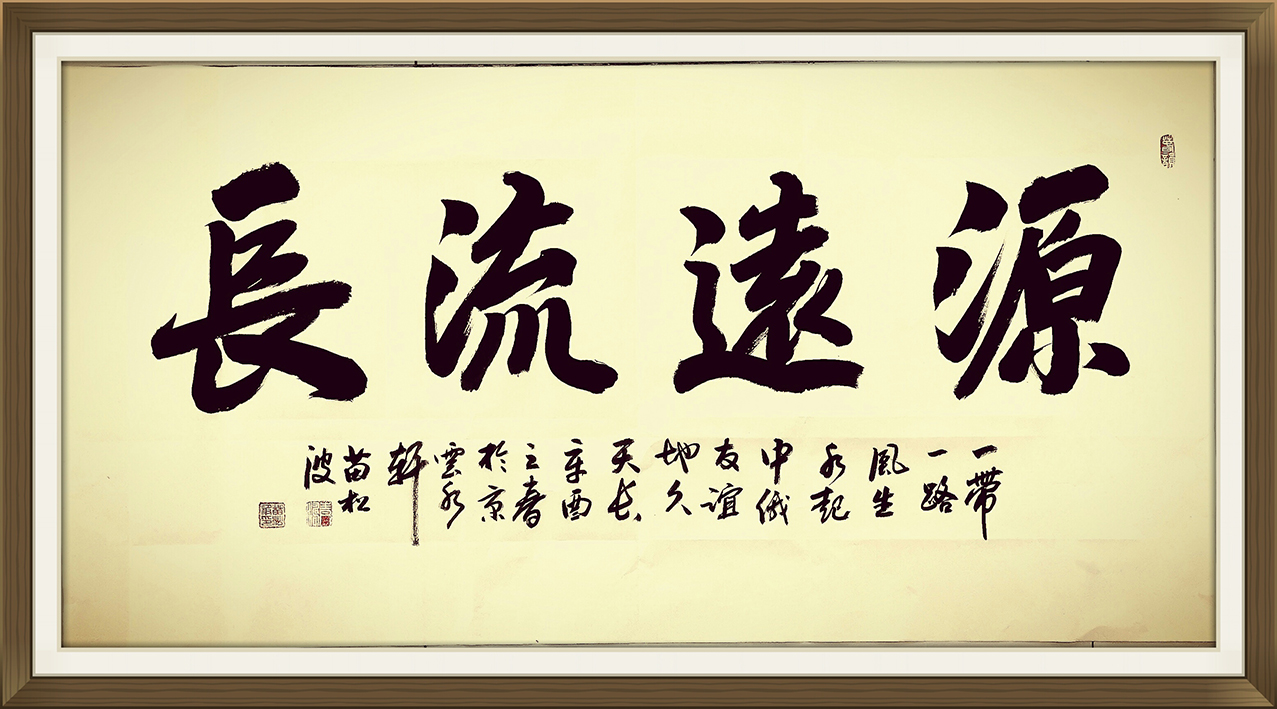 源遠流長
一帶
一路
風生
水起
中俄
友誼
地久
天长
辛酉
之春
於京
雲水
軒
苗松
波